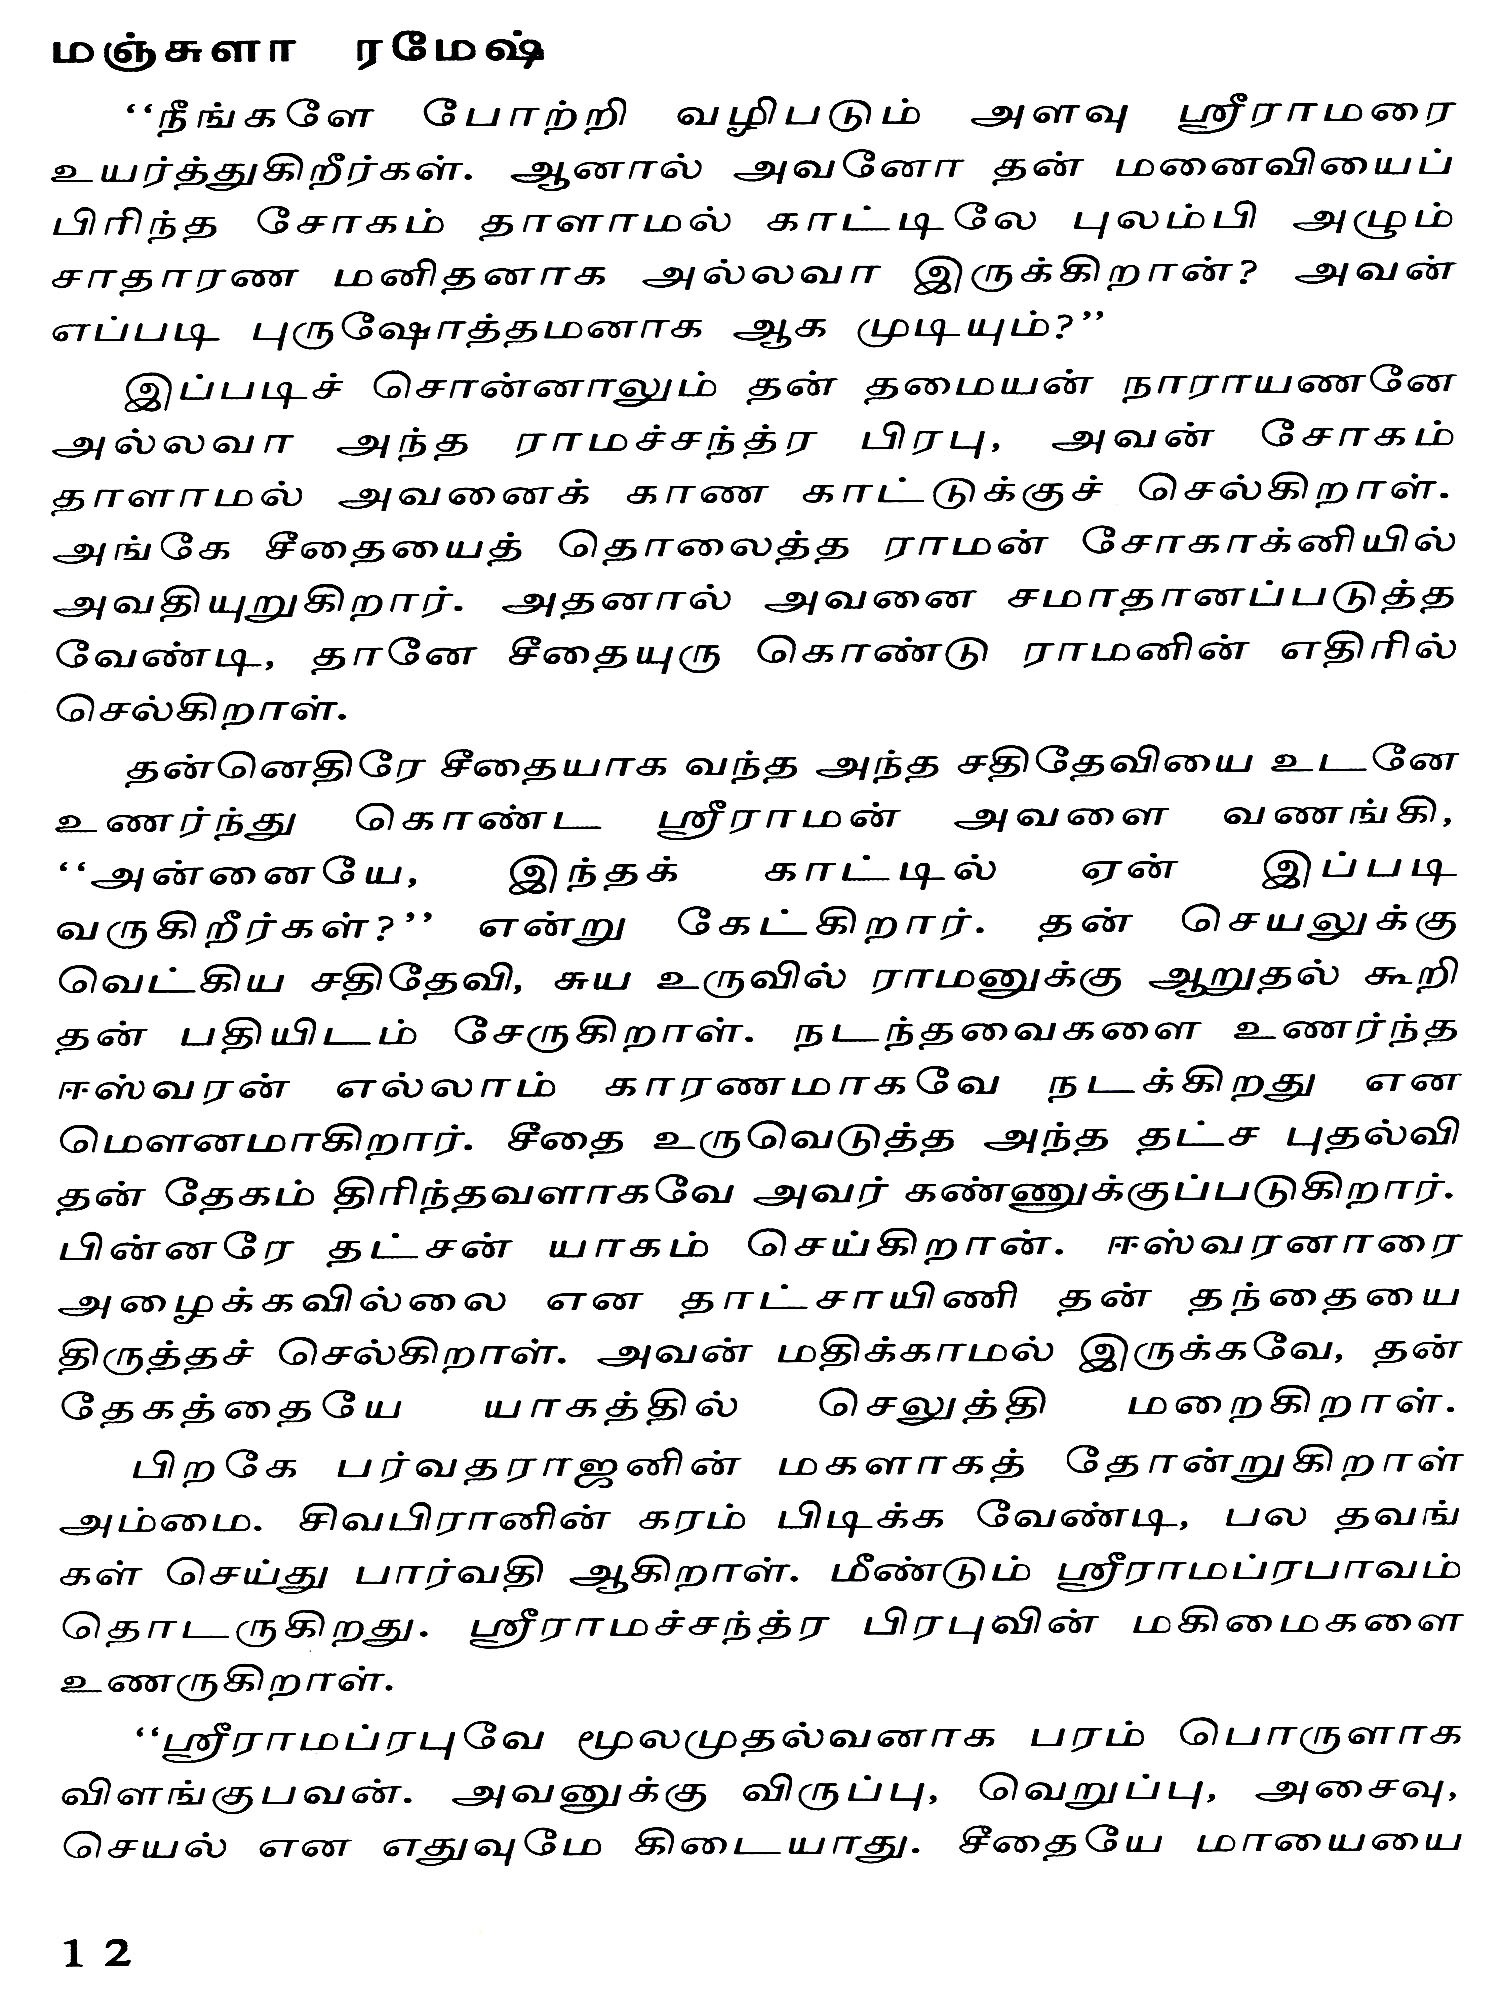 மஞ்சுளா ரமேஷ்
‘‘நீங்களே போற்றி வழிபடும் அளவு ஸ்ரீராமரை
உயர்த்துகிறீர்கள். ஆனால் அவனோ தன் மனைவியைப்
பிரிந்த சோகம் தாளாமல் காட்டிலே புலம்பி அழும்
சாதாரண மனிதனாக அல்லவா இருக்கிறான்? அவன்
எப்படி புருஷோத்தமனாக ஆக முடியும்?’’
இப்படிச் சொன்னாலும் தன் தமையன் நாராயணனே
அல்லவா அந்த ராமச்சந்த்ர பிரபு, அவன் சோகம்
தாளாமல் அவனைக் காண காட்டுக்குச் செல்கிறாள்.
அங்கே சீதையைத் தொலைத்த ராமன் சோகாக்னியில்
அவதியுறுகிறார். அதனால் அவனை சமாதானப்படுத்த
வேண்டி, தானே சீதையுரு கொண்டு ராமனின் எதிரில்
செல்கிறாள்.
தன்னெதிரே சீதையாக வந்த அந்த சதிதேவியை உடனே
உணர்ந்து கொண்ட ஸ்ரீராமன் அவளை வணங்கி,
‘‘அன்னையே, இந்தக் காட்டில் ஏன் இப்படி
வருகிறீர்கள்?’’ என்று கேட்கிறார். தன் செயலுக்கு
வெட்கிய சதிதேவி, சுய உருவில் ராமனுக்கு ஆறுதல் கூறி
தன் பதியிடம் சேருகிறாள். நடந்தவைகளை உணர்ந்த
ஈஸ்வரன் எல்லாம் காரணமாகவே நடக்கிறது என
மௌனமாகிறார். சீதை உருவெடுத்த அந்த தட்ச புதல்வி
தன் தேகம் திரிந்தவளாகவே அவர் கண்ணுக்குப்படுகிறார்.
பின்னரே தட்சன் யாகம் செய்கிறான். ஈஸ்வரனாரை
அழைக்கவில்லை என தாட்சாயிணி தன் தந்தையை
திருத்தச் செல்கிறாள். அவன் மதிக்காமல் இருக்கவே, தன்
தேகத்தையே யாகத்தில் செலுத்தி மறைகிறாள்.
பிறகே பர்வதராஜனின் மகளாகத் தோன்றுகிறாள்
அம்மை. சிவபிரானின் கரம் பிடிக்க வேண்டி, பல தவங்
கள் செய்து பார்வதி ஆகிறாள். மீண்டும் ஸ்ரீராமப்ரபாவம்
தொடருகிறது. ஸ்ரீராமச்சந்த்ர பிரபுவின் மகிமைகளை
உணருகிறாள்.
‘‘ஸ்ரீராமப்ரபுவே மூலமுதல்வனாக பரம் பொருளாக
விளங்குபவன். அவனுக்கு விருப்பு, வெறுப்பு, அசைவு,
செயல் என எதுவுமே கிடையாது. சீதையே மாயையை
12